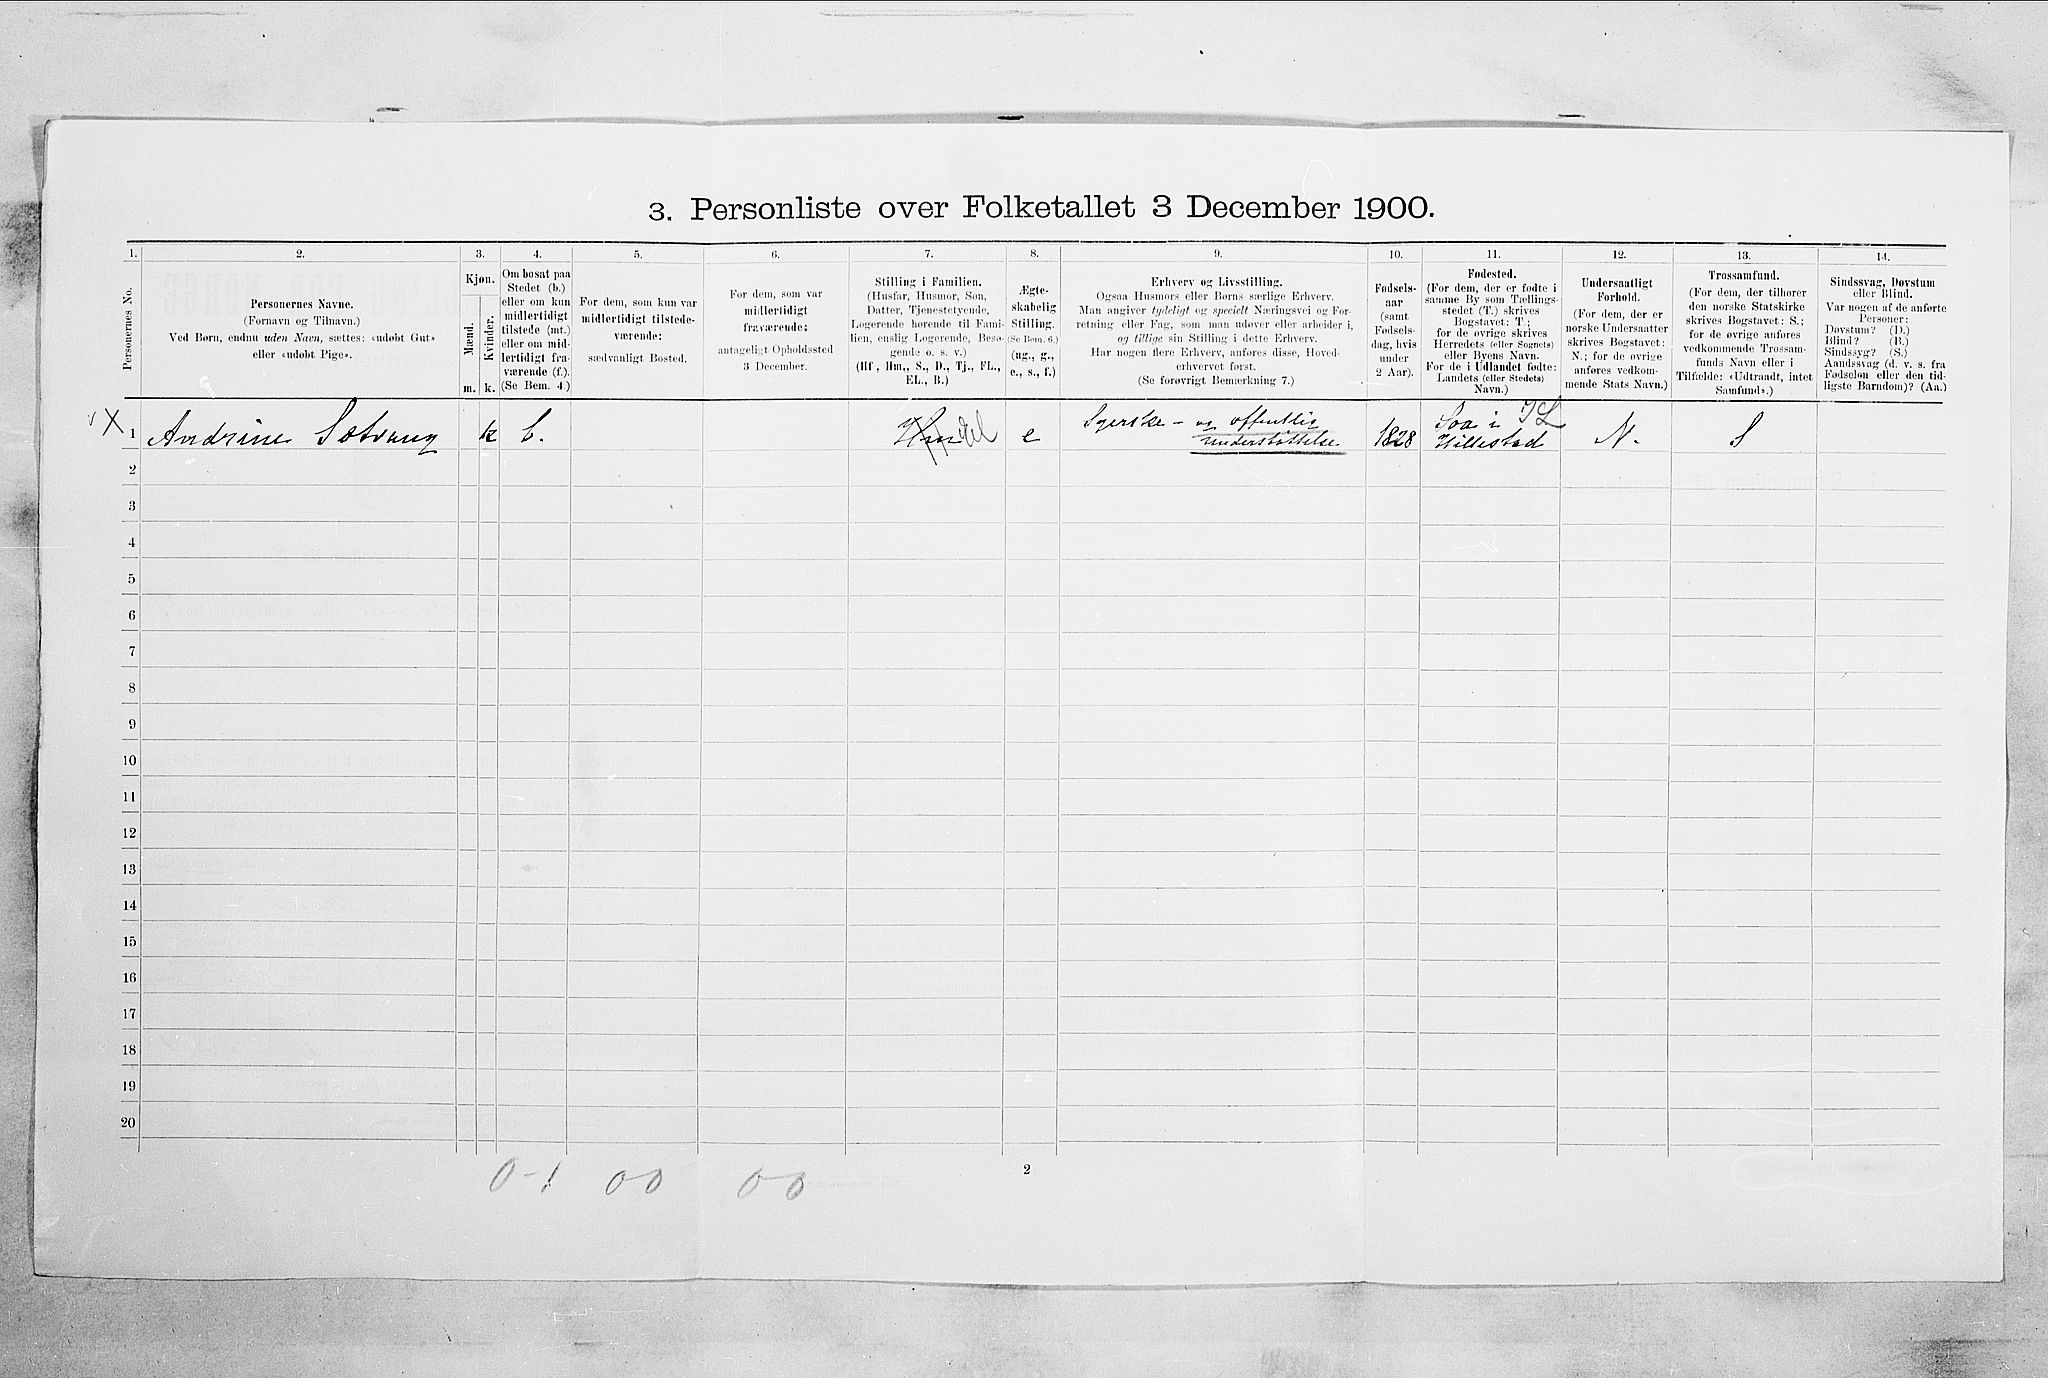 3. Personliste over Folketallet 3 December 1900.
1. 2. 3. 4. 5. 6. 7. 8. 9. 10. 11. 12. 13. 14.
Personernes No.
Personernes Navne.
(Fornavn og Tilnavn.)
Ved Børn, endnu uden Navn, sættes: «udøbt Gut»
eller «udøbt Pige».
Kjøn.
Mænd.
Kvinder.
m. k.
Om bosat paa
Stedet (b.)
eller om kun
midlertidigt
tilstede (mt.)
eller om mid-
lertidigt fra-
værende (f.).
(Se Bem. 4.)
For dem, som kun var
midlertidigt tilstede-
værende:
sædvanligt Bosted.
For dem, som var
midlertidigt
fraværende:
antageligt Opholdssted
3 December.
Stilling i Familien.
(Husfar, Husmor, Søn,
Datter, Tjenestetyende,
Logerende hørende til Fami-
lien, enslig Logerende, Besø-
gende o. s. v.)
(Hf., Hm., S., D., Tj., FL.,
EL., B.)
Ægte-
skabelig
Stilling.
(Se Bem. 6.)
(ug., g.,
e., s., f.)
Erhverv og Livsstilling.
Ogsaa Husmors eller Børns særlige Erhverv.
Man angiver tydeligt og specielt Næringsvei og For-
retning eller Fag, som man udøver eller arbeider i,
og tillige sin Stilling i dette Erhverv.
Har nogen flere Erhverv, anføres disse, Hoved-
erhvervet først.
(Se forøvrigt Bemærkning 7.)
Fødsels-
aar
(samt
Fødsels-
dag, hvis
under
2 Aar).
Fødested.
(For dem, der er fødte i
samme By som Tællings-
stedet (T.) skrives
Bogstavet: T.;
for de øvrige skrives
Herredets (eller Sognets)
eller Byens Navn.
For de i Udlandet fødte:
Landets (eller Stedets)
Navn.)
Undersaatligt
Forhold.
(For dem, der er
norske Undersaatter
skrives Bogstavet:
N.; for de øvrige
anføres vedkom-
mende Stats Navn.)
Trossamfund.
(For dem, der tilhører
den norske Statskirke
skrives Bogstavet: S.;
for de øvrige anføres
vedkommende Trossam-
funds Navn eller i
Tilfælde: «Udtraadt, intet
Samfund».)
Sindssvag, Døvstum
eller Blind.
Var nogen af de anførte
Personer:
Døvstum? (D.)
Blind? (B.)
Sindssyg? (S.)
Aandssvag (d. v. s. fra
Fødselen eller den tid-
ligste Barndom)? (Aa.)
X 1 k b. e Syerske - og offentlig
understøttelse 1828
Hillestad N. S
Andrine
2
3
4
5
6
7
8
9
10
11
12
13
14
15
16
17
18
19
20
0-1 00 00
2